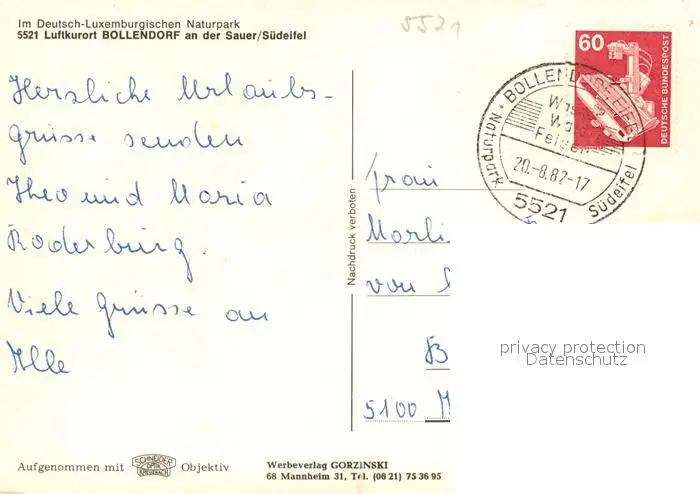 Im Deutsch-Luxemburgischen Naturpark
5521 Luftkurort BOLLENDORF an der Sauer/Südeifel
5521
Herzliche Urlaubs-
grüsse senden
Theo und Maria
Roderburg.
Viele Grüsse an
Alle
Aufgenommen mit SCHNEIDER OPTIK KREUZNACH Objektiv
Nachdruck verboten
Werbeverlag GORZINSKI
68 Mannheim 31, Tel. (06 21) 75 36 95
60
DEUTSCHE BUNDESPOST
BOLLENDORF EIFEL
Felsen
20.-8.82-17
5521
Naturpark Südeifel
Frau
Marli
von
B
5100 M
privacy protection
Datenschutz